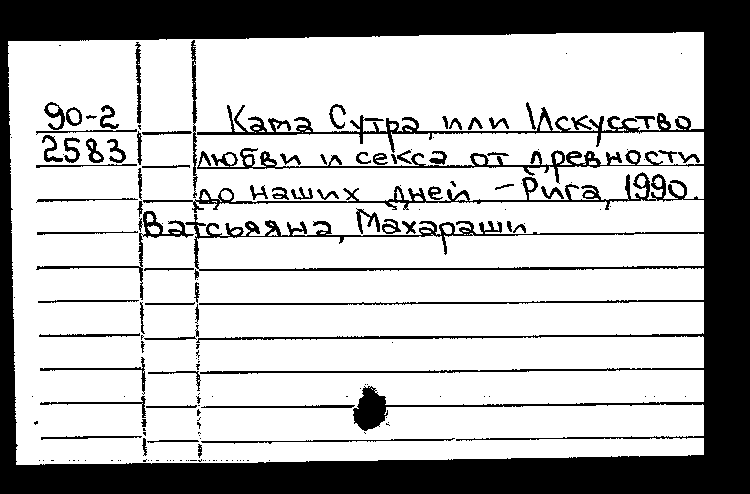 90-2 Кама Сутра, или Искусство
2583 любви и секса от древности
до наших дней. – Рига, 1990.
Ватсьяяна, Махараши.